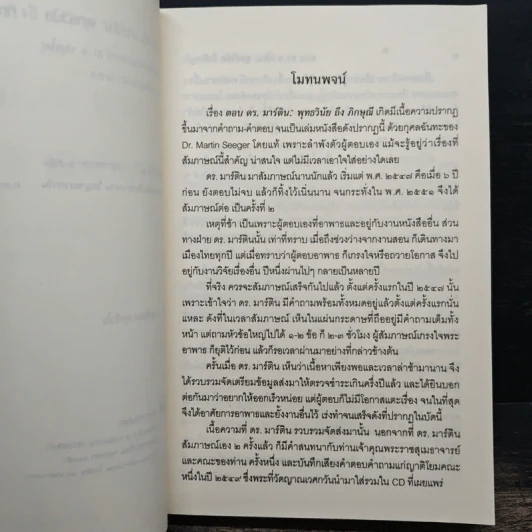 โมทนพจน์
เรื่อง ตอบ ดร. มาร์ติน: พุทธวินัย ถึง ภิกษุณี เกิดมีเนื้อความปรากฏ
ขึ้นมาจากคำถาม-คำตอบ จนเป็นเล่มหนังสือดังปรากฏนี้ ด้วยกุศลฉันทะของ
Dr. Martin Seeger โดยแท้ เพราะลำพังตัวผู้ตอบเอง แม้จะรู้อยู่ว่าเรื่องที่
สัมภาษณ์นี้สำคัญ น่าสนใจ แต่ไม่มีเวลาเอาใจใส่อย่างใดเลย
ดร. มาร์ติน มาสัมภาษณ์นานนักแล้ว เริ่มแต่ พ.ศ. ๒๕๔๗ คือเมื่อ ๖ ปี
ก่อน ยังตอบไม่จบ แล้วก็ทิ้งไว้เนิ่นนาน จนกระทั่งใน พ.ศ. ๒๕๕๑ จึงได้
สัมภาษณ์ต่อ เป็นครั้งที่ ๒
เหตุที่ช้า เป็นเพราะผู้ตอบเองที่อาพาธและอยู่กับงานหนังสืออื่น ส่วน
ทางฝ่าย ดร. มาร์ตินนั้น เท่าที่ทราบ เมื่อถึงช่วงว่างจากงานสอน ก็เดินทางมา
เมืองไทยทุกปี แต่เมื่อทราบว่าผู้ตอบอาพาธ ก็เกรงใจหรือถวายโอกาส จึงไป
อยู่กับงานวิจัยเรื่องอื่น ปีหนึ่งผ่านไปๆ กลายเป็นหลายปี
ที่จริง ควรจะสัมภาษณ์เสร็จกันไปแล้ว ตั้งแต่ครั้งแรกในปี ๒๕๔๗ นั้น
เพราะเข้าใจว่า ดร. มาร์ติน มีคำถามพร้อมทั้งหมดอยู่แล้วตั้งแต่ครั้งแรกนั้น
แหละ ดังที่ในเวลาสัมภาษณ์ เห็นในแผ่นกระดาษที่ถืออยู่มีคำถามเต็มทั้ง
หน้า แต่ถามหัวข้อใหญ่ไปได้ ๑-๒ ข้อ ก็ ๒-๓ ชั่วโมง ผู้สัมภาษณ์เกรงใจพระ
อาพาธ ก็ยุติไว้ก่อน แล้วก็รอเวลาผ่านมาอย่างที่กล่าวข้างต้น
ครั้นเมื่อ ดร. มาร์ติน เห็นว่าเนื้อหาเพียงพอและเวลาล่าช้ามานาน จึง
ได้รวบรวมจัดเตรียมข้อมูลส่งมาให้ตรวจชำระเกินครึ่งปีแล้ว และได้ยินบอก
ต่อกันมาว่าอยากให้ออกเร็วหน่อย แต่ผู้ตอบก็ไม่มีโอกาสแตะเรื่อง จนในที่สุด
จึงได้อาศัยการอาพาธและยั้งงานอื่นไว้ เร่งทำจนเสร็จดังที่ปรากฏในบัดนี้
เนื้อความที่ ดร. มาร์ติน รวบรวมจัดส่งมานั้น นอกจากที่ ดร. มาร์ติน
สัมภาษณ์เอง ๒ ครั้งแล้ว ก็มีคำสนทนากับท่านเจ้าคุณพระราชสุเมธาจารย์
และคณะของท่าน ครั้งหนึ่ง และบันทึกเสียงคำตอบคำถามแก่ญาติโยมคณะ
หนึ่งในปี ๒๕๔๙ ซึ่งพระที่วัดญาณเวศกวันนำมาใส่รวมใน CD ที่เผยแพร่